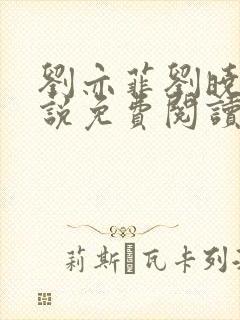 劉亦菲劉曉
說免費閱讀
莉斯 瓦卡列